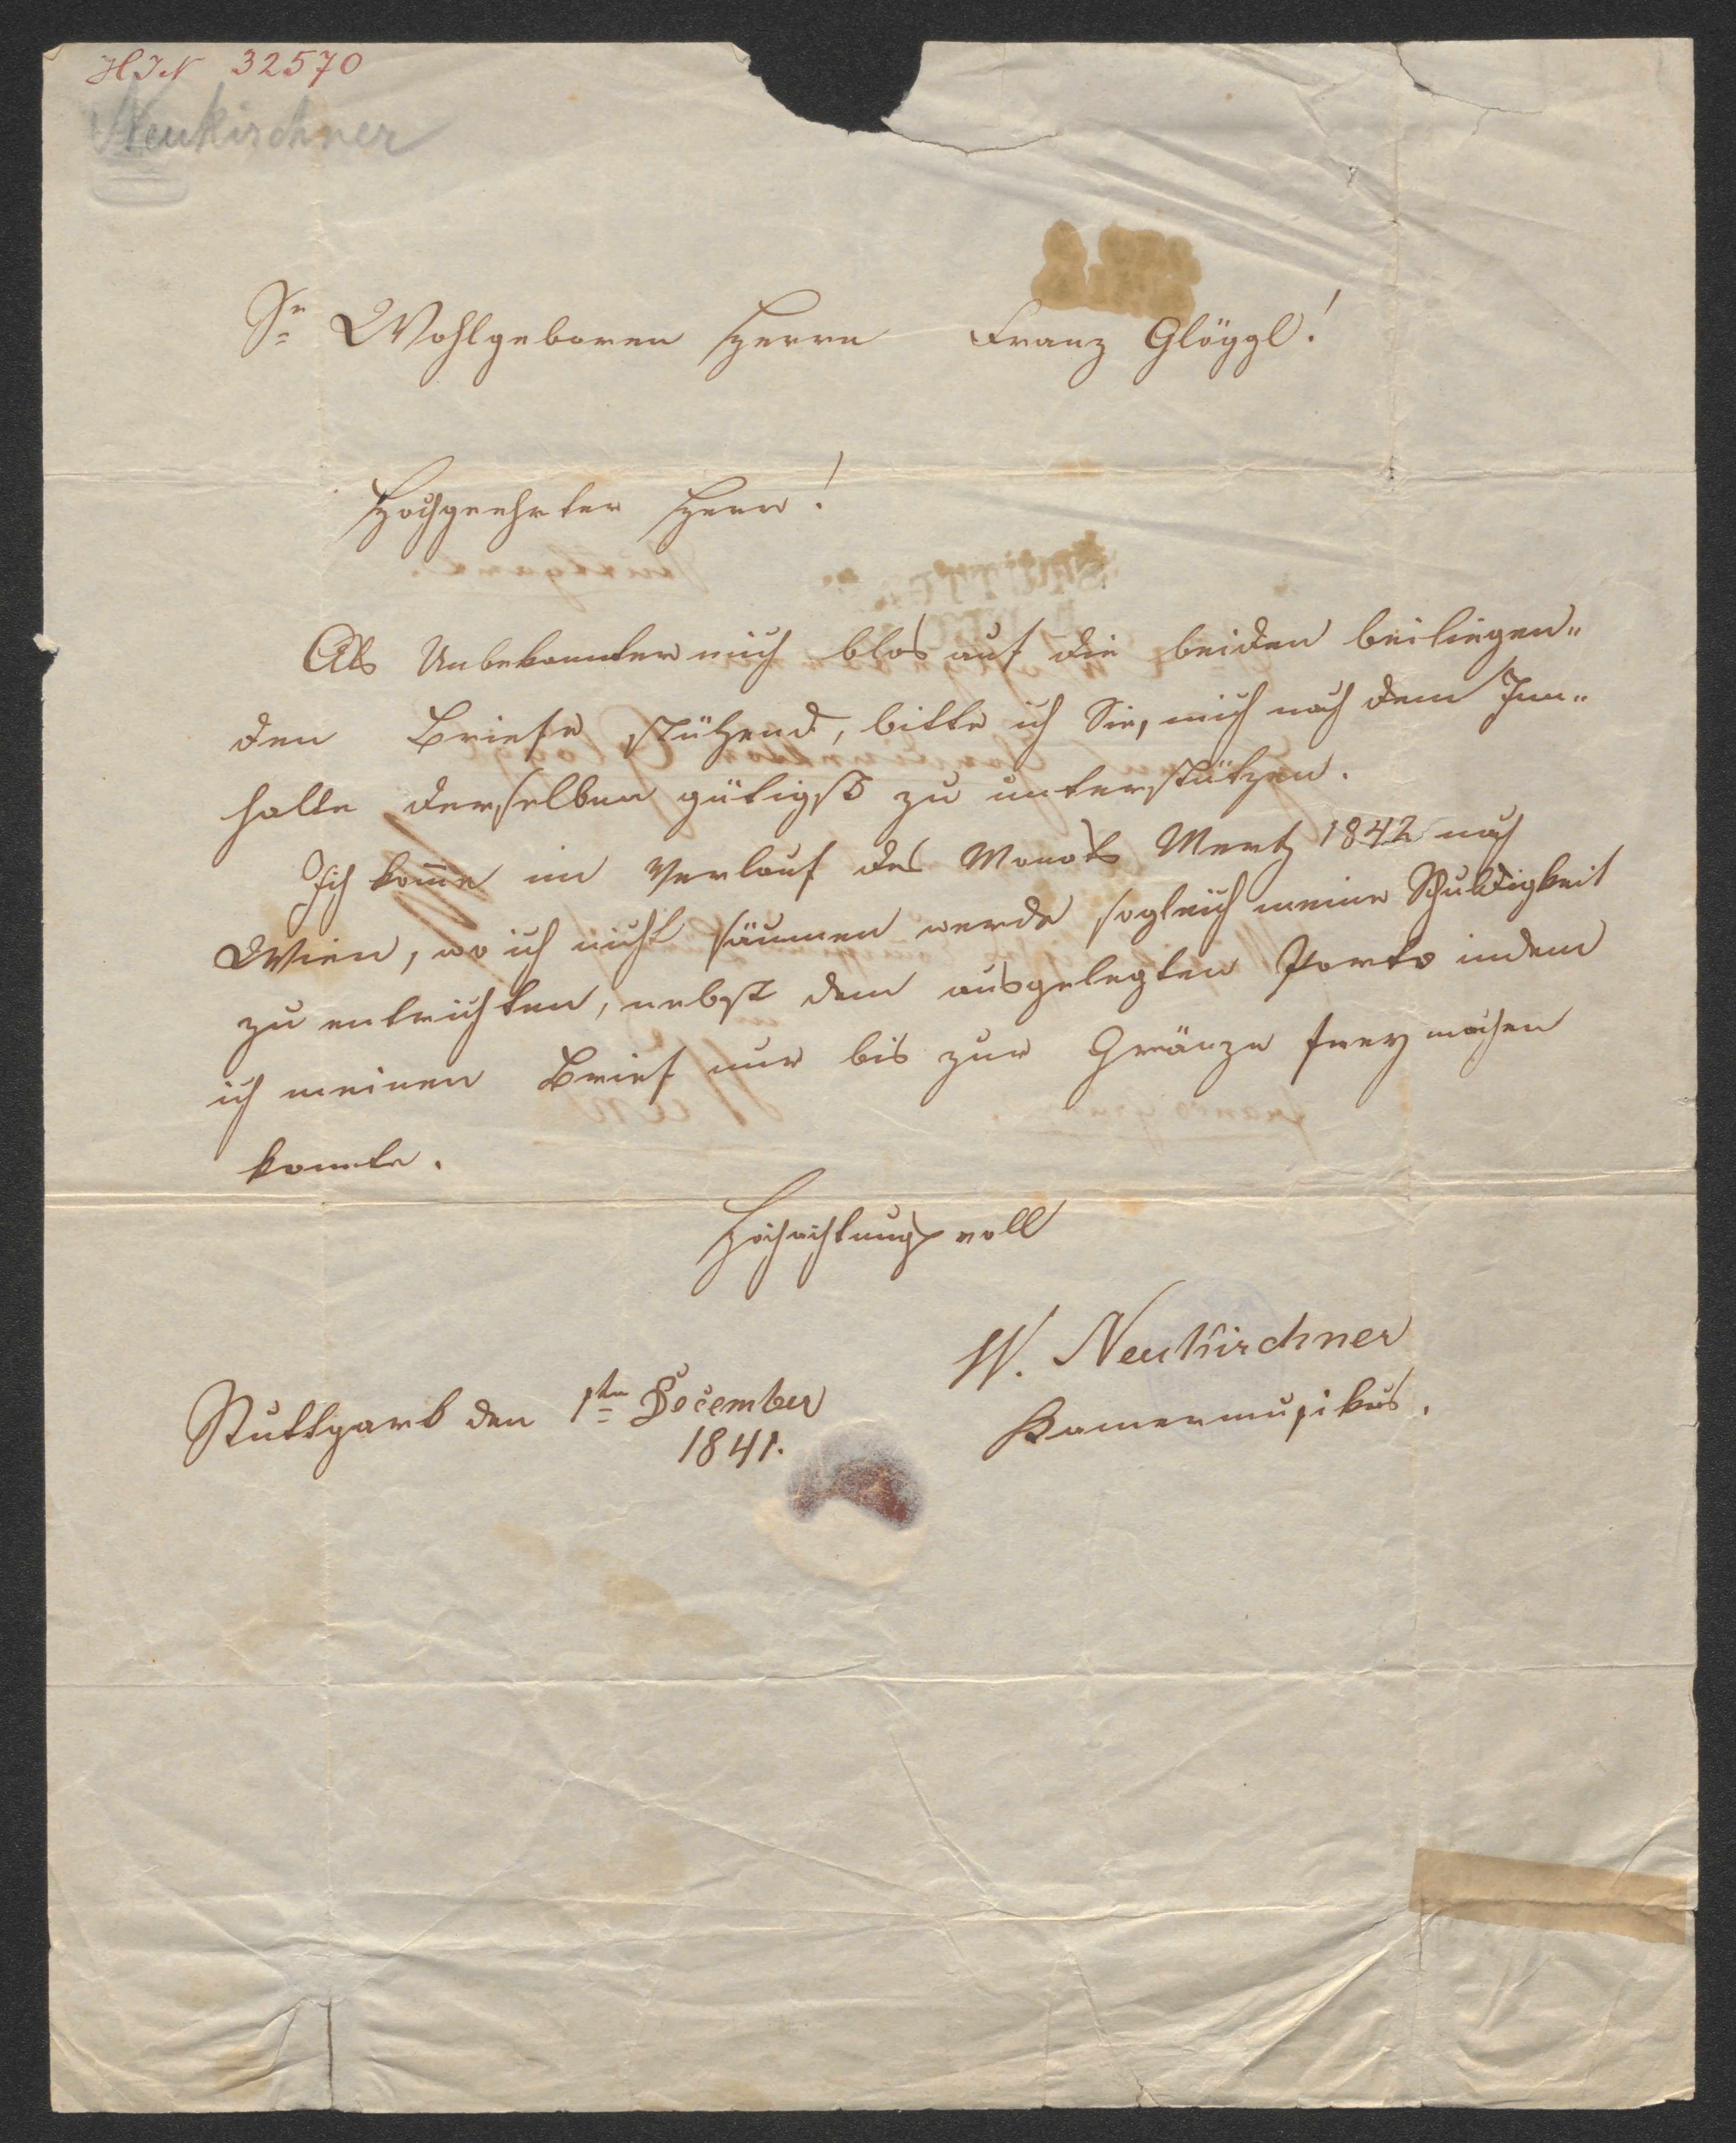 HIN 32570
Neukirchner
Sr Wohlgeboren Herrn Franz Glöggl!
Hochgeehrter Herr!
Als Unbekannter mich blos auf die beiden beiliegen„
den Briefe stützend, bitte ich Sie, mich nach dem Inn„
halte derselben gütigst zu unterstützen.
Ich kom̅e im Verlauf des Monats Mertz 1842 nach
Wien, wo ich nicht säumen werde sogleich meine Schuldigkeit
zu entrichten, nebst dem ausgelegten Porto indem
ich meinen Brief nur bis zur Gränze frey machen
konnte.
Hochachtungsvoll
W. Neukirchner
Stuttgart den 1ten December
Kamermusikus.
1841.